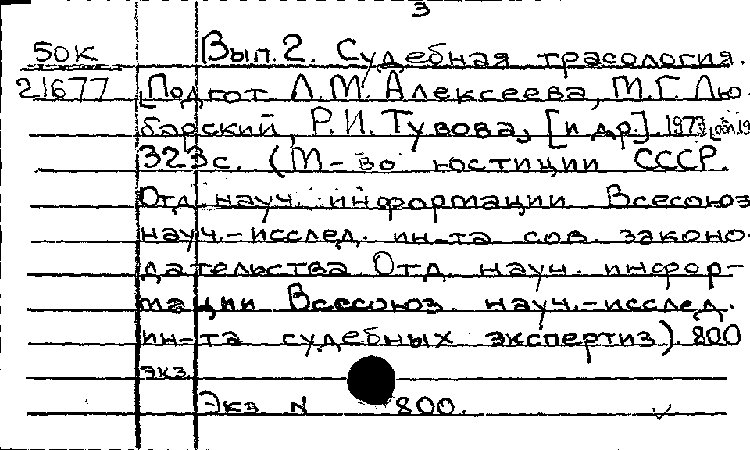 3
50К Вып. 2. Судебная трасология.
21677 [Подгот Л.М. Алексеева, М.Г. Лю-
барский, Р.И. Тувова, [и др.]. 1973
323с. (М-во юстиции СССР.
Отд науч. информации Всесоюз
науч.-исслед. ин-та сов. законо-
дательства Отд. науч. инфор-
мации Всесоюз. науч.-исслед.
ин-та судебных экспертиз). 800
экз.
Экз N 800.